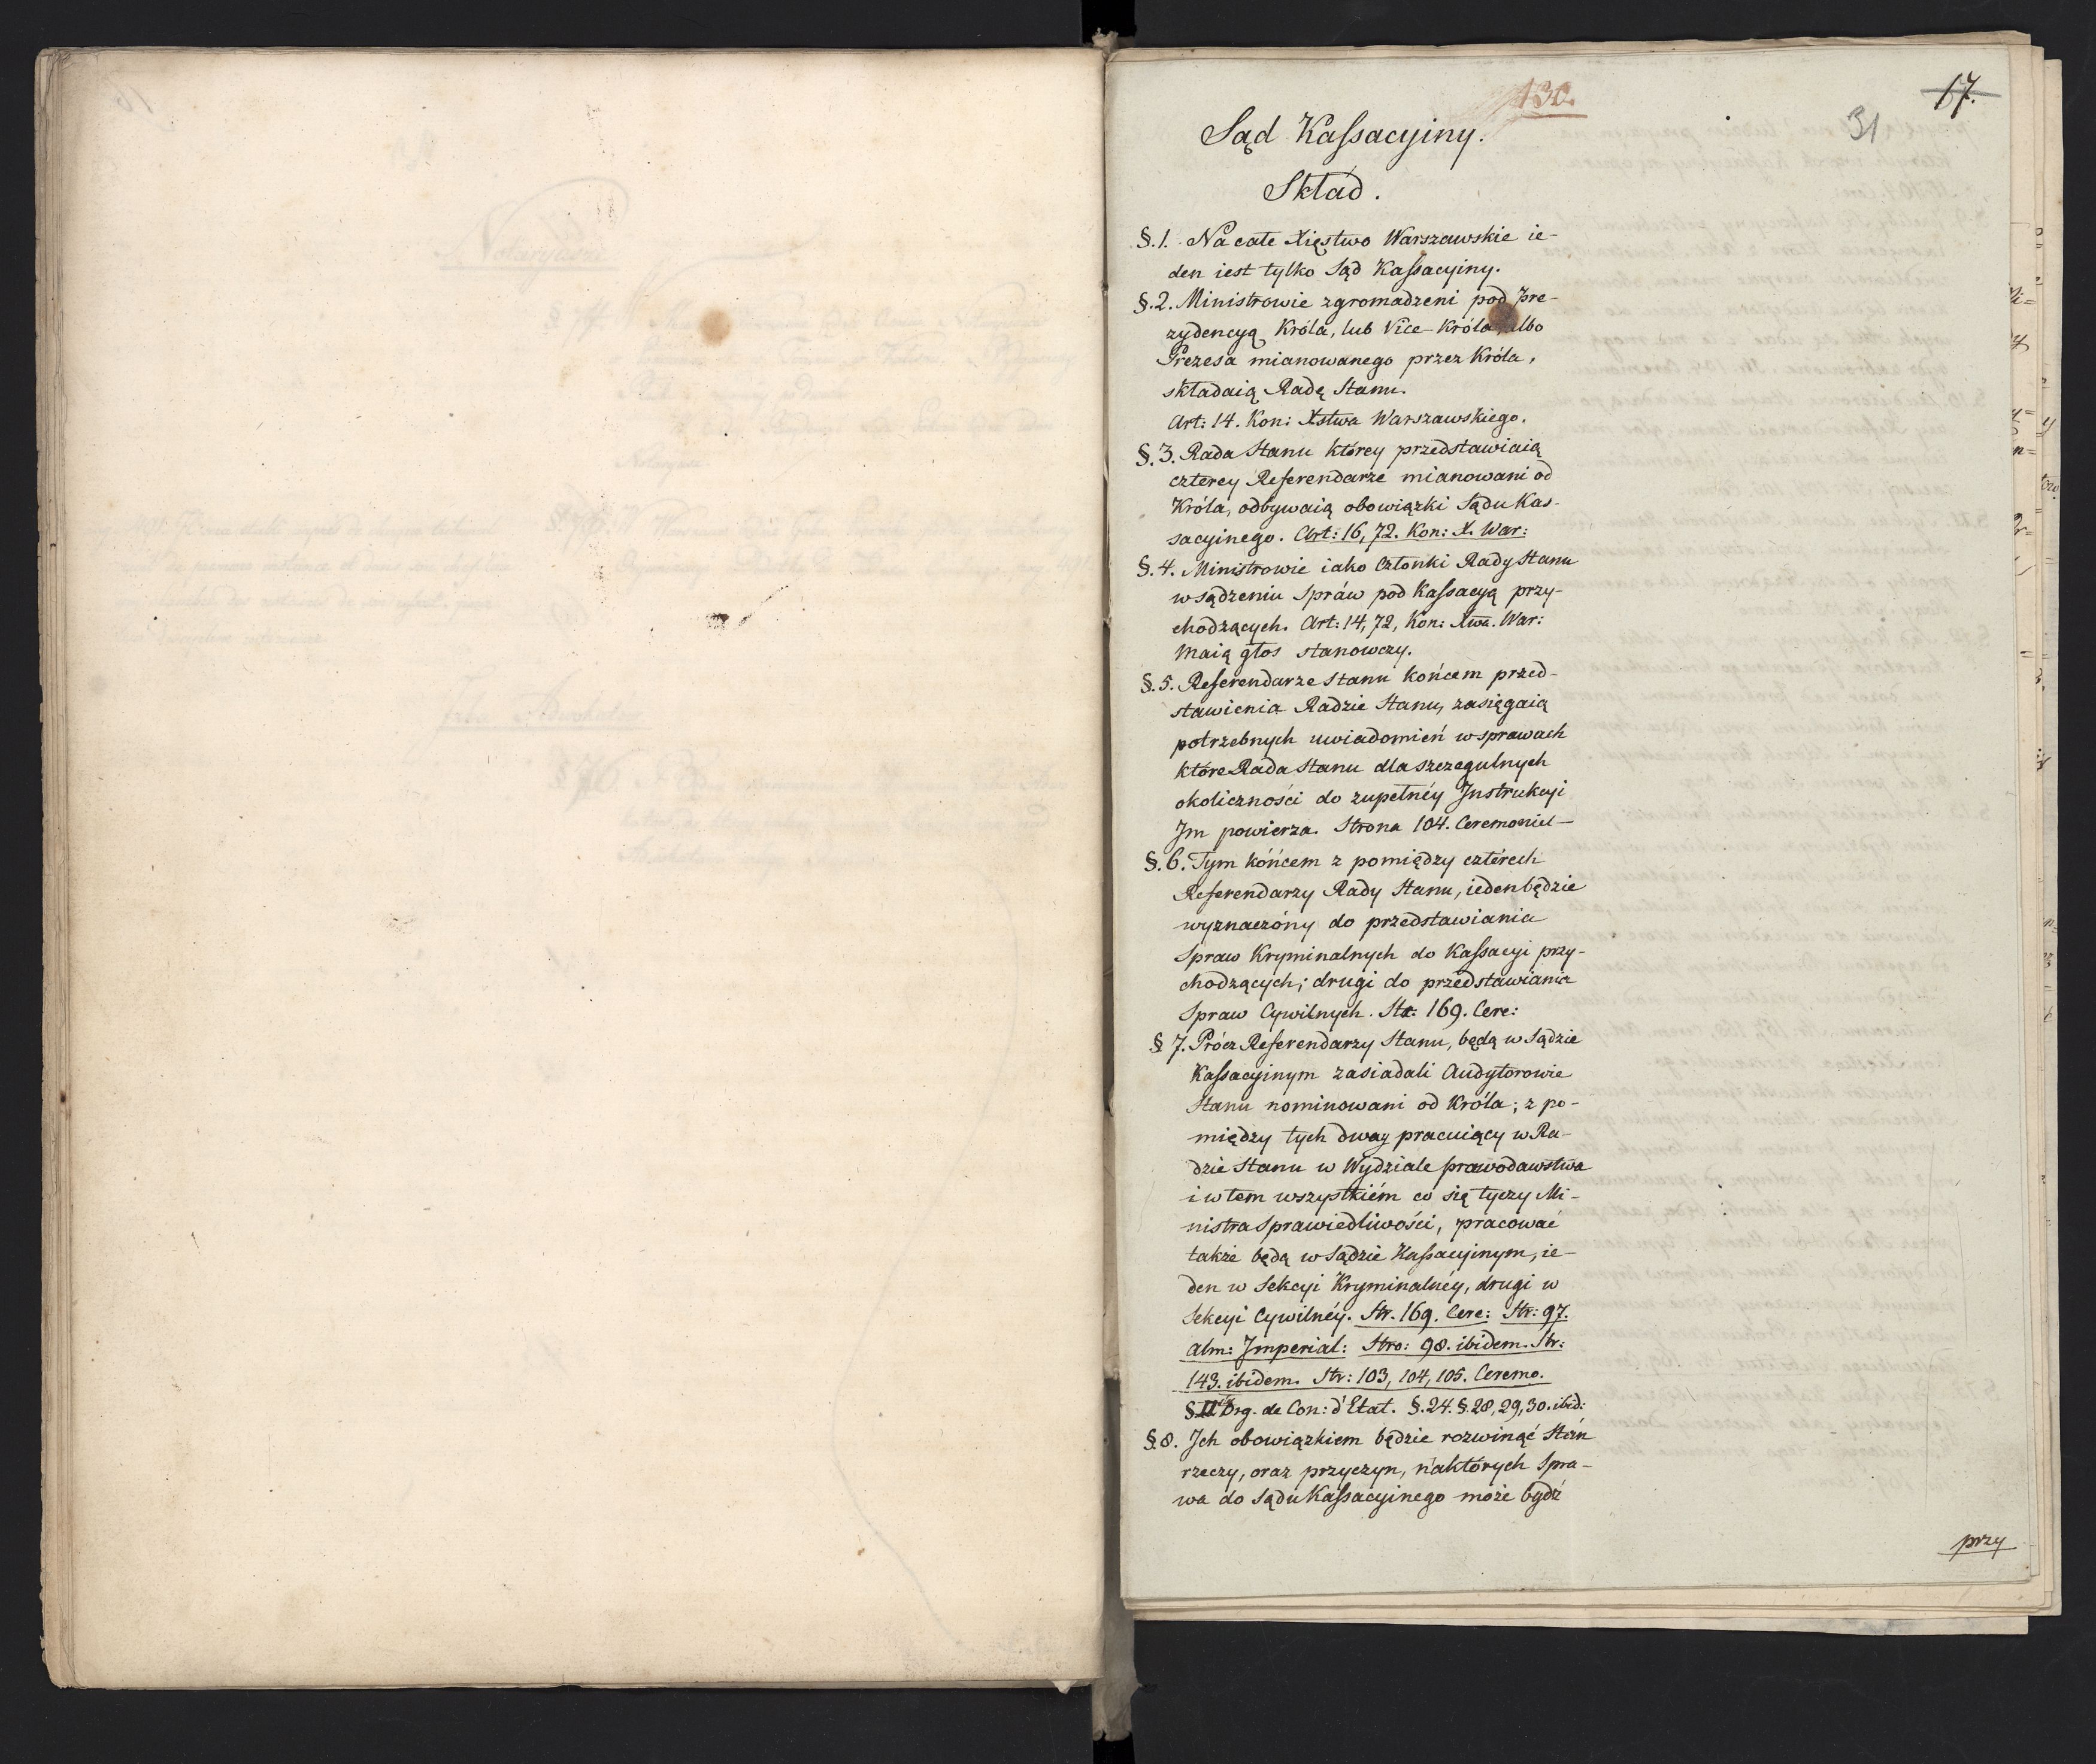 130.
17.
31
Sąd Kaſsacyiny.
Skład.
§.1. Na całe Xięstwo Warszawskie ie-
den iest tylko Sąd Kaſsacyiny.
§.2. Ministrowie zgromadzeni pod Pre-
zydencyą Króla, lub Vice-Króla, albo
Prezesa mianowanego przez Króla,
składaią Radę Stanu.
Art: 14. Kon: Xstwa Warszawskiego.
§.3. Rada Stanu którey przedstawiaią
czterey Referendarze mianowani od
Króla, odbywaią obowiązki Sądu Kas-
sacyinego. Art: 16, 72. Kon: X. War:
§.4. Ministrowie iako Członki Rady Stanu
w sądzeniu Spráw pod Kaſsacyą przy-
chodzących. Art: 14, 72, Kon: Xwa. War:
Maią głos stanowczy.
§.5. Referendarze Stanu końcem przed-
stawienia Radzie Stanu, zasięgaią
potrzebnych uwiadomień w sprawach
które Rada Stanu dla szczegulnych
okoliczności do zupełnéy Instrukcyi
Im powierza. Strona 104. Ceremoniel-
§.6. Tym końcem z pomiędzy czterech
Referendarzy Rady Stanu, ieden będzie
wyznaczóny do przedstawiania
Spraw Kryminalnych do Kaſsacyi przy-
chodzących; drugi do przedstawiania
Spraw Cywilnych. Str: 169. Cere:
§ 7. Prócz Referendarzy Stanu, będą w Sądzie
Kaſsacyinym zasiadali Audytorowie
Stanu nominowani od Króla; z po-
między tych dway pracuiący w Ra-
dzie Stanu w Wydziale prawodawstwa
i w tem wszystkiém co się tyczy Mi-
nistra Sprawiedliwości, pracować
także będą w Sądzie Kaſsacyinym, ie-
den w Sekcyi Kryminalnéy, drugi w
Sekcyi Cywilnéy. Str. 169. Cere: Str: 97.
Alm: Imperial: Stro: 98. ibidem. Str:
143. ibidem. Str: 103, 104, 105. Ceremo.
§ II Org. de Con: d'Etat. §.24. §.28, 29, 30. ibid:
§.8. Ich obowiązkiem będzie rozwinąć Stán
rzeczy, oraz przyczyn, na których Spra-
wa do Sądu Kaſsacyinego może bydź
przy